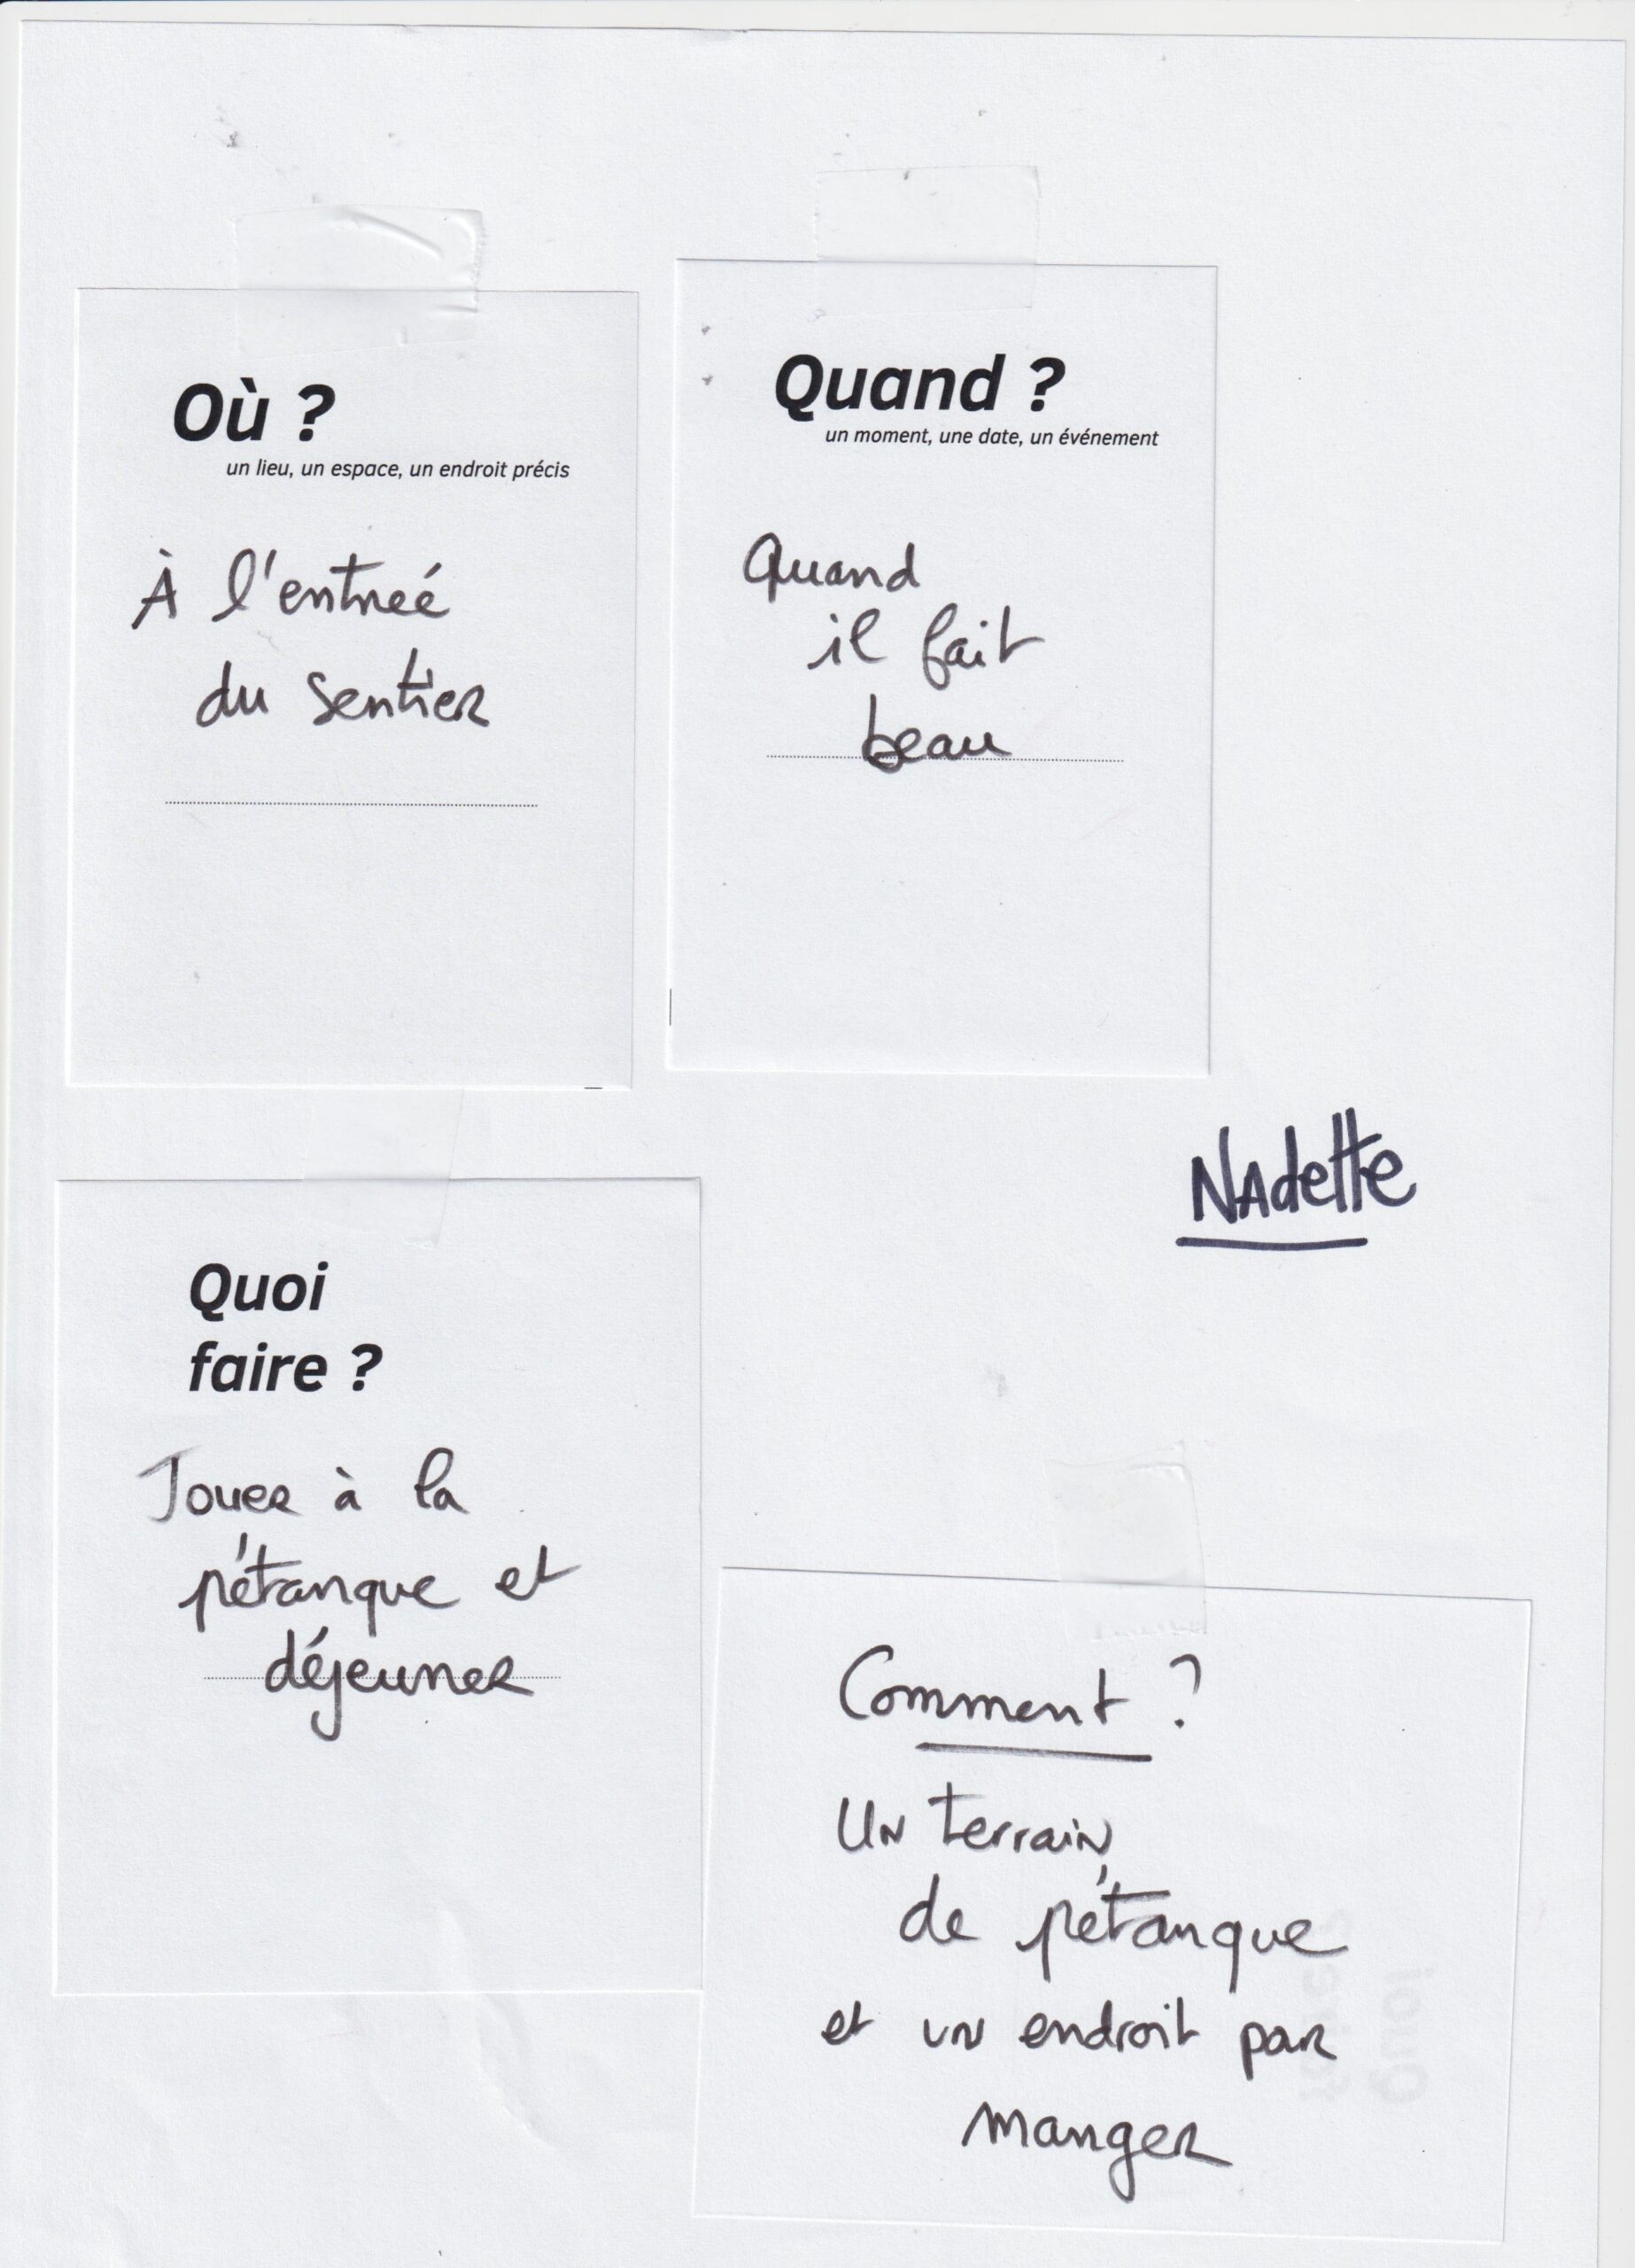 Où ?
un lieu, un espace, un endroit précis
À l'entreé
du sentier
Quand ?
un moment, une date, un événement
Quand
il fait
beau
NAdette
Quoi
faire ?
Jouer à la
pétanque et
déjeuner
Comment ?
UN terrain
de pétanque
et un endroit par
manger
Quoi
faire ?